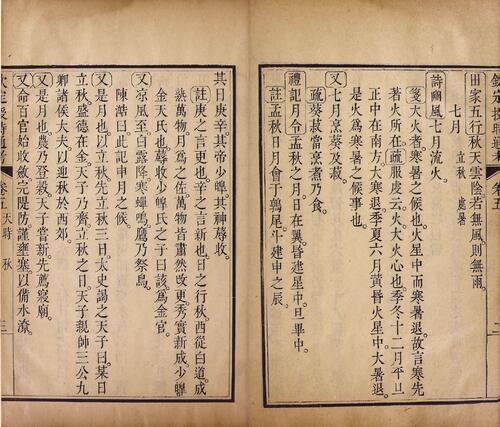 欽定授時通考 卷五
田家五行秋天雲陰若無風則無雨
七月 立秋 處暑
詩豳風七月流火
箋大火者寒暑之候也火星中而寒暑退故言寒先
著火所在疏服虔云火大火心也季冬十二月平旦
正中在南方大寒退季夏六月黃昏火星中大暑退
是火為寒暑之候事也
又七月烹葵及菽
疏葵菽當烹煮乃食
禮記月令孟秋之月日在翼昏建星中旦畢中
註孟秋日月會于鶉尾斗建申之辰
其日庚辛其帝少皞其神蓐收
註庚之言更也辛之言新也日之行秋西從白道成
熟萬物月為之佐萬物皆肅然改更秀實新成少皞
金天氏也蓐收少皞氏之子曰該為金官
又涼風至白露降寒蟬鳴鷹乃祭鳥
陳澔曰此記申月之候
又是月也以立秋先立秋三日太史謁之天子曰某日
立秋盛德在金天子乃齊立秋之日天子親帥三公九
卿諸侯大夫以迎秋於西郊
又是月也農乃登穀天子嘗新先薦寢廟
又命百官始收斂完隄防謹壅塞以備水潦
欽定授時通考 卷五 天時 秋 三